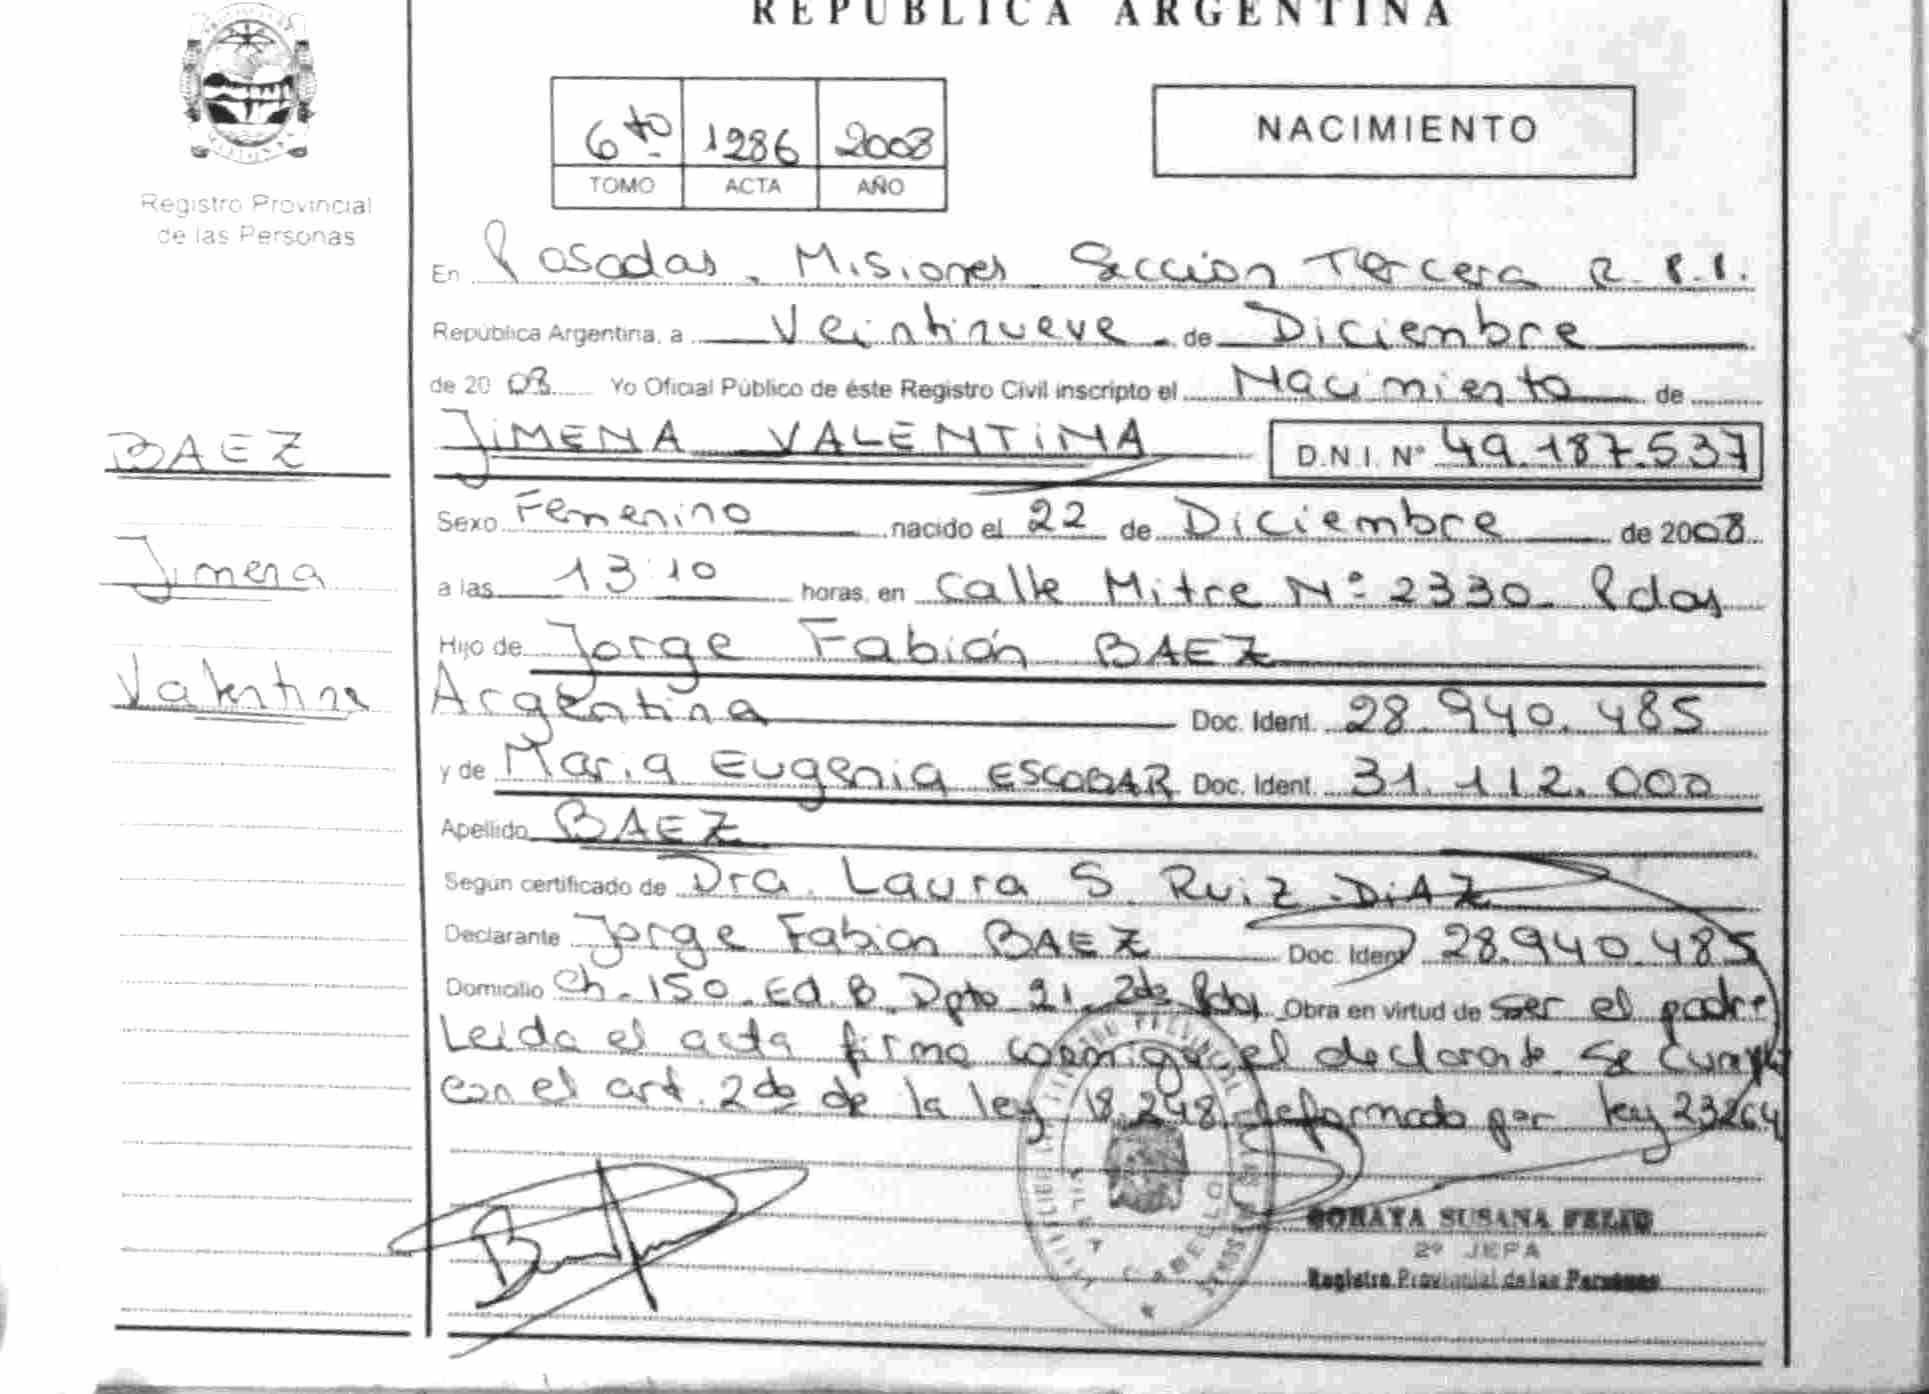 REPUBLICA ARGENTINA
Registro Provincial
de las Personas
6to 1286 2008
TOMO ACTA AÑO
NACIMIENTO
En Posadas. Misiones Seccion Tercera R.P.P.
República Argentina, a Veintinueve de Diciembre
de 20 08 Yo Oficial Público de éste Registro Civil inscripto el Nacimiento de
JIMENA VALENTINA D.N.I. Nº 49.187.537
BAEZ
Sexo Femenino nacido el 22 de Diciembre de 2008
Jimena
a las 13:10 horas, en Calle Mitre Nº 2330 Pdas
Hijo de Jorge Fabián BAEZ
Valentina
Argentina Doc. Ident. 28.940.485
y de Maria Eugenia ESCOBAR Doc. Ident. 31.112.000
Apellido BAEZ
Según certificado de Dra. Laura S. Ruiz DiAZ
Declarante Jorge Fabian BAEZ Doc. Ident 28.940.485
Domicilio Ch. 150. Ed. B. Dpto 21. 2do Pdas Obra en virtud de ser el padre
Leida el acta firma conmigo el declarante. Se cumple
con el art. 2do de la ley 18.248 reformado por ley 23264
SORAYA SUSANA
2º JEFA
Registro Provincial de las Personas